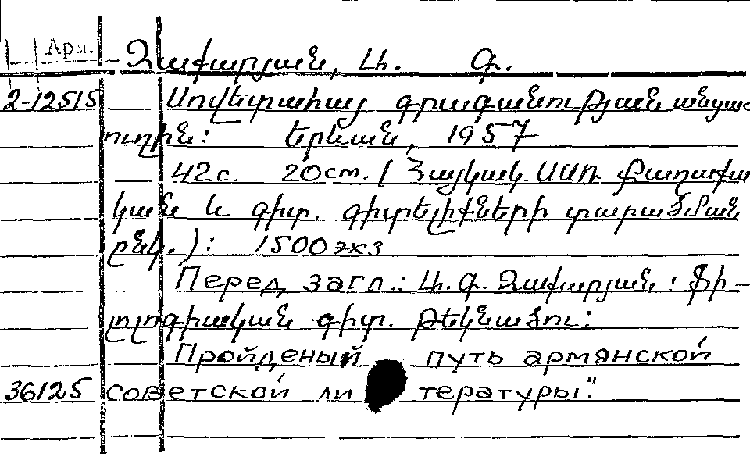 Арм.
Զաքարյան, Ա. Գ.
2-12515 Սովետահայ գրականության անցած
ուղին: Երևան, 1957
42с. 20см. (Հայկակ ՍՍՌ Քաղաքա
կան և գիտ. գիտելիքների տարածման
ընկ.): 1500 экз
Перед загл.: Ա. Գ. Զաքարյան: Ֆի-
լոլոգիական գիտ. թեկնածու:
Пройденый путь армянской
36125 советской литературы."